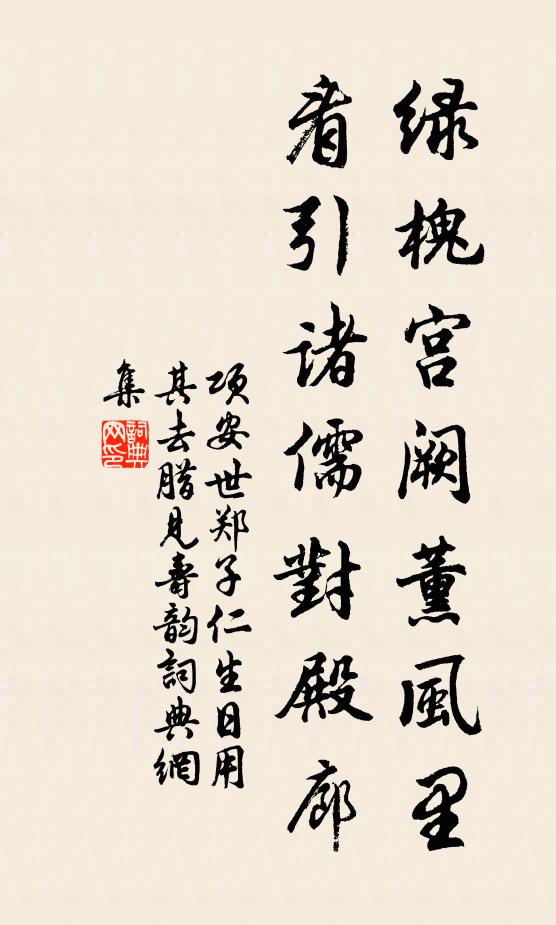 绿槐宫阙薰風里
看引诸儒對殿廊
项安世郑子仁生日用
其去腊見壽韵詞典網
集
詞典
网印